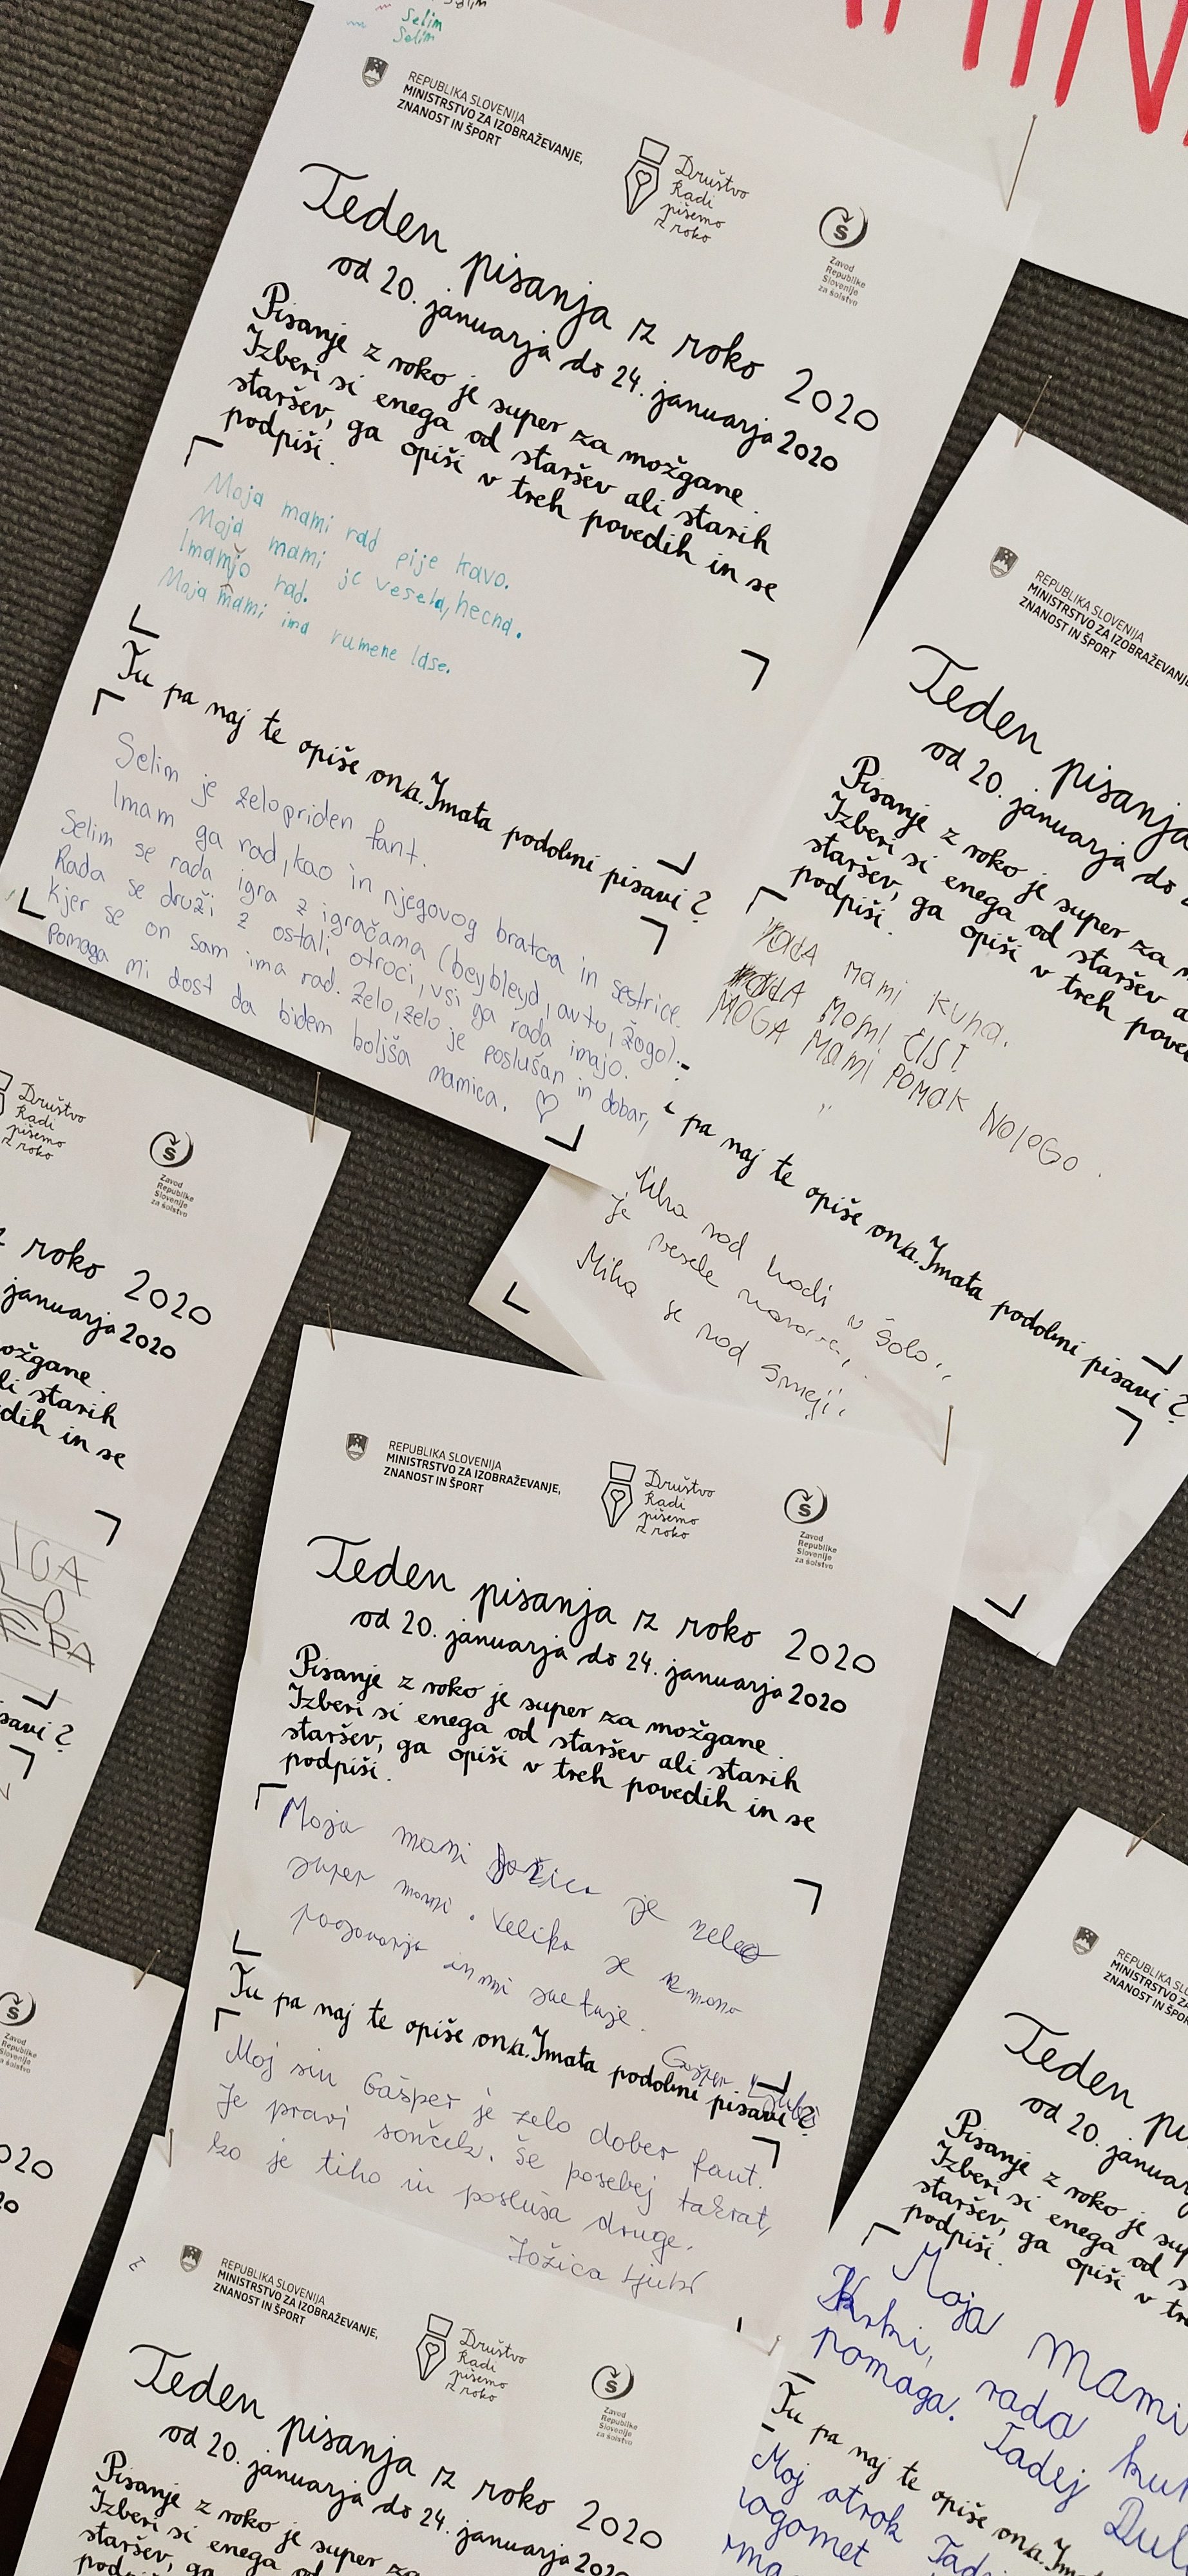 Selim
Selim
Selim
REPUBLIKA SLOVENIJA
MINISTRSTVO ZA IZOBRAŽEVANJE,
ZNANOST IN ŠPORT
Društvo
Radi
pišemo
z roko
Zavod
Republike
Slovenije
za šolstvo
Teden pisanja z roko 2020
od 20. januarja do 24. januarja 2020
Pisanje z roko je super za možgane.
Izberi si enega od staršev ali starih
staršev, ga opiši v treh povedih in se
podpiši.
Moja mami rad pije kavo.
Moja mami je vesela, hecna.
Imamjo rad.
Moja mami ima rumene lase.
Tu pa naj te opiše on/a. Imata podobni pisavi?
Selim je zelopriden fant.
Imam ga rad, kao in njegovog bratca in sestrice.
Selim se rada igra z igračama (beybleyd, avto, žogo).
Rada se druži z ostali otroci, vsi ga rada imajo.
Kjer se on sam ima rad. Zelo, zelo je poslušan in dobar,
Pomaga mi dost da bidem boljša mamica. ♡
REPUBLIKA SLOVENIJA
MINISTRSTVO ZA IZOBRAŽEVANJE
ZNANOST IN ŠPORT
Teden pisanja
od 20. januarja do
Pisanje z roko je super za m
Izberi si enega od staršev a
staršev, ga opiši v treh pove
podpiši.
MAMI KUHA.
MOMI ČIST
MOGA MAMI POMAK NOLOGO.
i pa naj te opiše on/a. Imata podobni pisavi?
Miha rad hodi v šolo.
je vesele narave,
Miha se rad smeji.
Društvo
Radi
pišemo
z roko
Zavod
Republike
Slovenije
za šolstvo
z roko 2020
januarja 2020
ožgane.
li starih
edih in se
IGA
PA
savi?
REPUBLIKA SLOVENIJA
MINISTRSTVO ZA IZOBRAŽEVANJE,
ZNANOST IN ŠPORT
Društvo
Radi
pišemo
z roko
Zavod
Republike
Slovenije
za šolstvo
Teden pisanja z roko 2020
od 20. januarja do 24. januarja 2020
Pisanje z roko je super za možgane.
Izberi si enega od staršev ali starih
staršev, ga opiši v treh povedih in se
podpiši.
Moja mami Jožica je zelo
super mami. Veliko se z mano
pogovarja in mi svetuje.
Gašper
Tu pa naj te opiše on/a. Imata podobni pisavi?
Moj sin Gašper je zelo dober fant.
Je pravi sonček. Še posebej takrat,
ko je tiho in posluša druge.
Jožica
Zavod
Republike
Slovenije
za šolstvo
020
20
REPUBLIKA SLOVENIJA
MINISTRSTVO ZA IZOBRAŽEVANJE,
ZNANOST IN ŠPORT
Društvo
Radi
pišemo
z roko
Zavod
Republike
Slovenije
za šolstvo
Teden pisanja z roko 2020
od 20. januarja do 24. januarja 2020
Pisanje z roko je super za
Izberi si enega od staršev
staršev, ga
podpiši
REPUBLIKA SLO
MINISTRSTVO ZA
ZNANOST IN ŠPO
Teden pi
od 20. januar
Pisanje z roko je sup
Izberi si enega od s
staršev, ga opiši v tre
podpiši.
Moja mami
skrbi, rada kuh
pomaga. Tadej Dul
Tu pa naj te opiše on/a. Im
Moj otrok Tad
nogomet